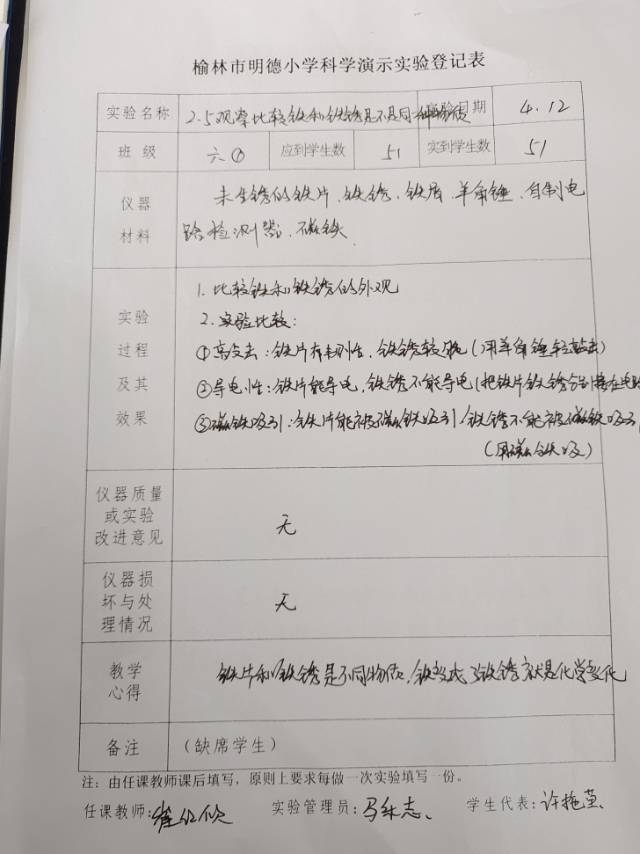 榆林市明德小学科学演示实验登记表
实验名称 2.5观察比较铁和铁锈是不是同一种物质 实验日期 4.12
班级 六① 应到学生数 51 实到学生数 51
仪器 未生锈的铁片、铁锈、铁屑、羊角锤、自制电
材料 路检测器、磁铁、
1.比较铁和铁锈的外观
实验 2.实验比较:
过程 ①敲击:铁片有韧性,铁锈较脆(用羊角锤轻敲击)
及其 ②导电性:铁片能导电,铁锈不能导电(把铁片铁锈分别接在电路
效果 ③磁铁吸引:铁片能被磁铁吸引,铁锈不能被磁铁吸引
(用磁铁吸)
仪器质量
或实验
改进意见 无
仪器损
坏与处 无
理情况
教学 铁片和铁锈是不同物质,铁变成了铁锈就是化学变化
心得
备注 (缺席学生)
注:由任课教师课后填写,原则上要求每做一次实验填写一份。
任课教师: 实验管理员: 学生代表:许